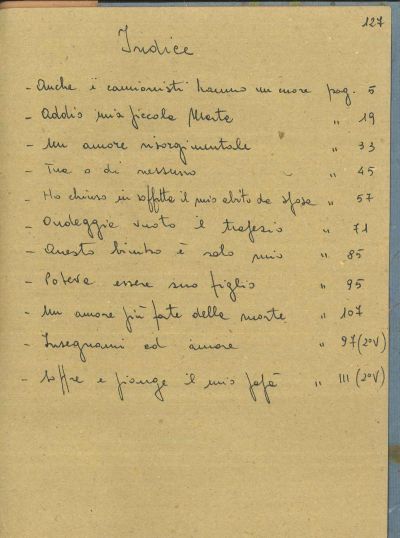 127
Indice
- Anche i camionisti hanno un cuore pag. 5
- Addio mia piccola Marta " 19
- Un amore risorgimentale " 33
- Tua o di nessuno " 45
- Ho chiuso in soffitta il mio abito da sposa " 57
- Ondeggia vuoto il trapezio " 71
- Questo bimbo è solo mio " 85
- Poteva essere suo figlio " 95
- Un amore più forte della morte " 107
- Insegnami ad amare " 97 (20V)
- Soffre e piange il mio papà " 111 (20V)